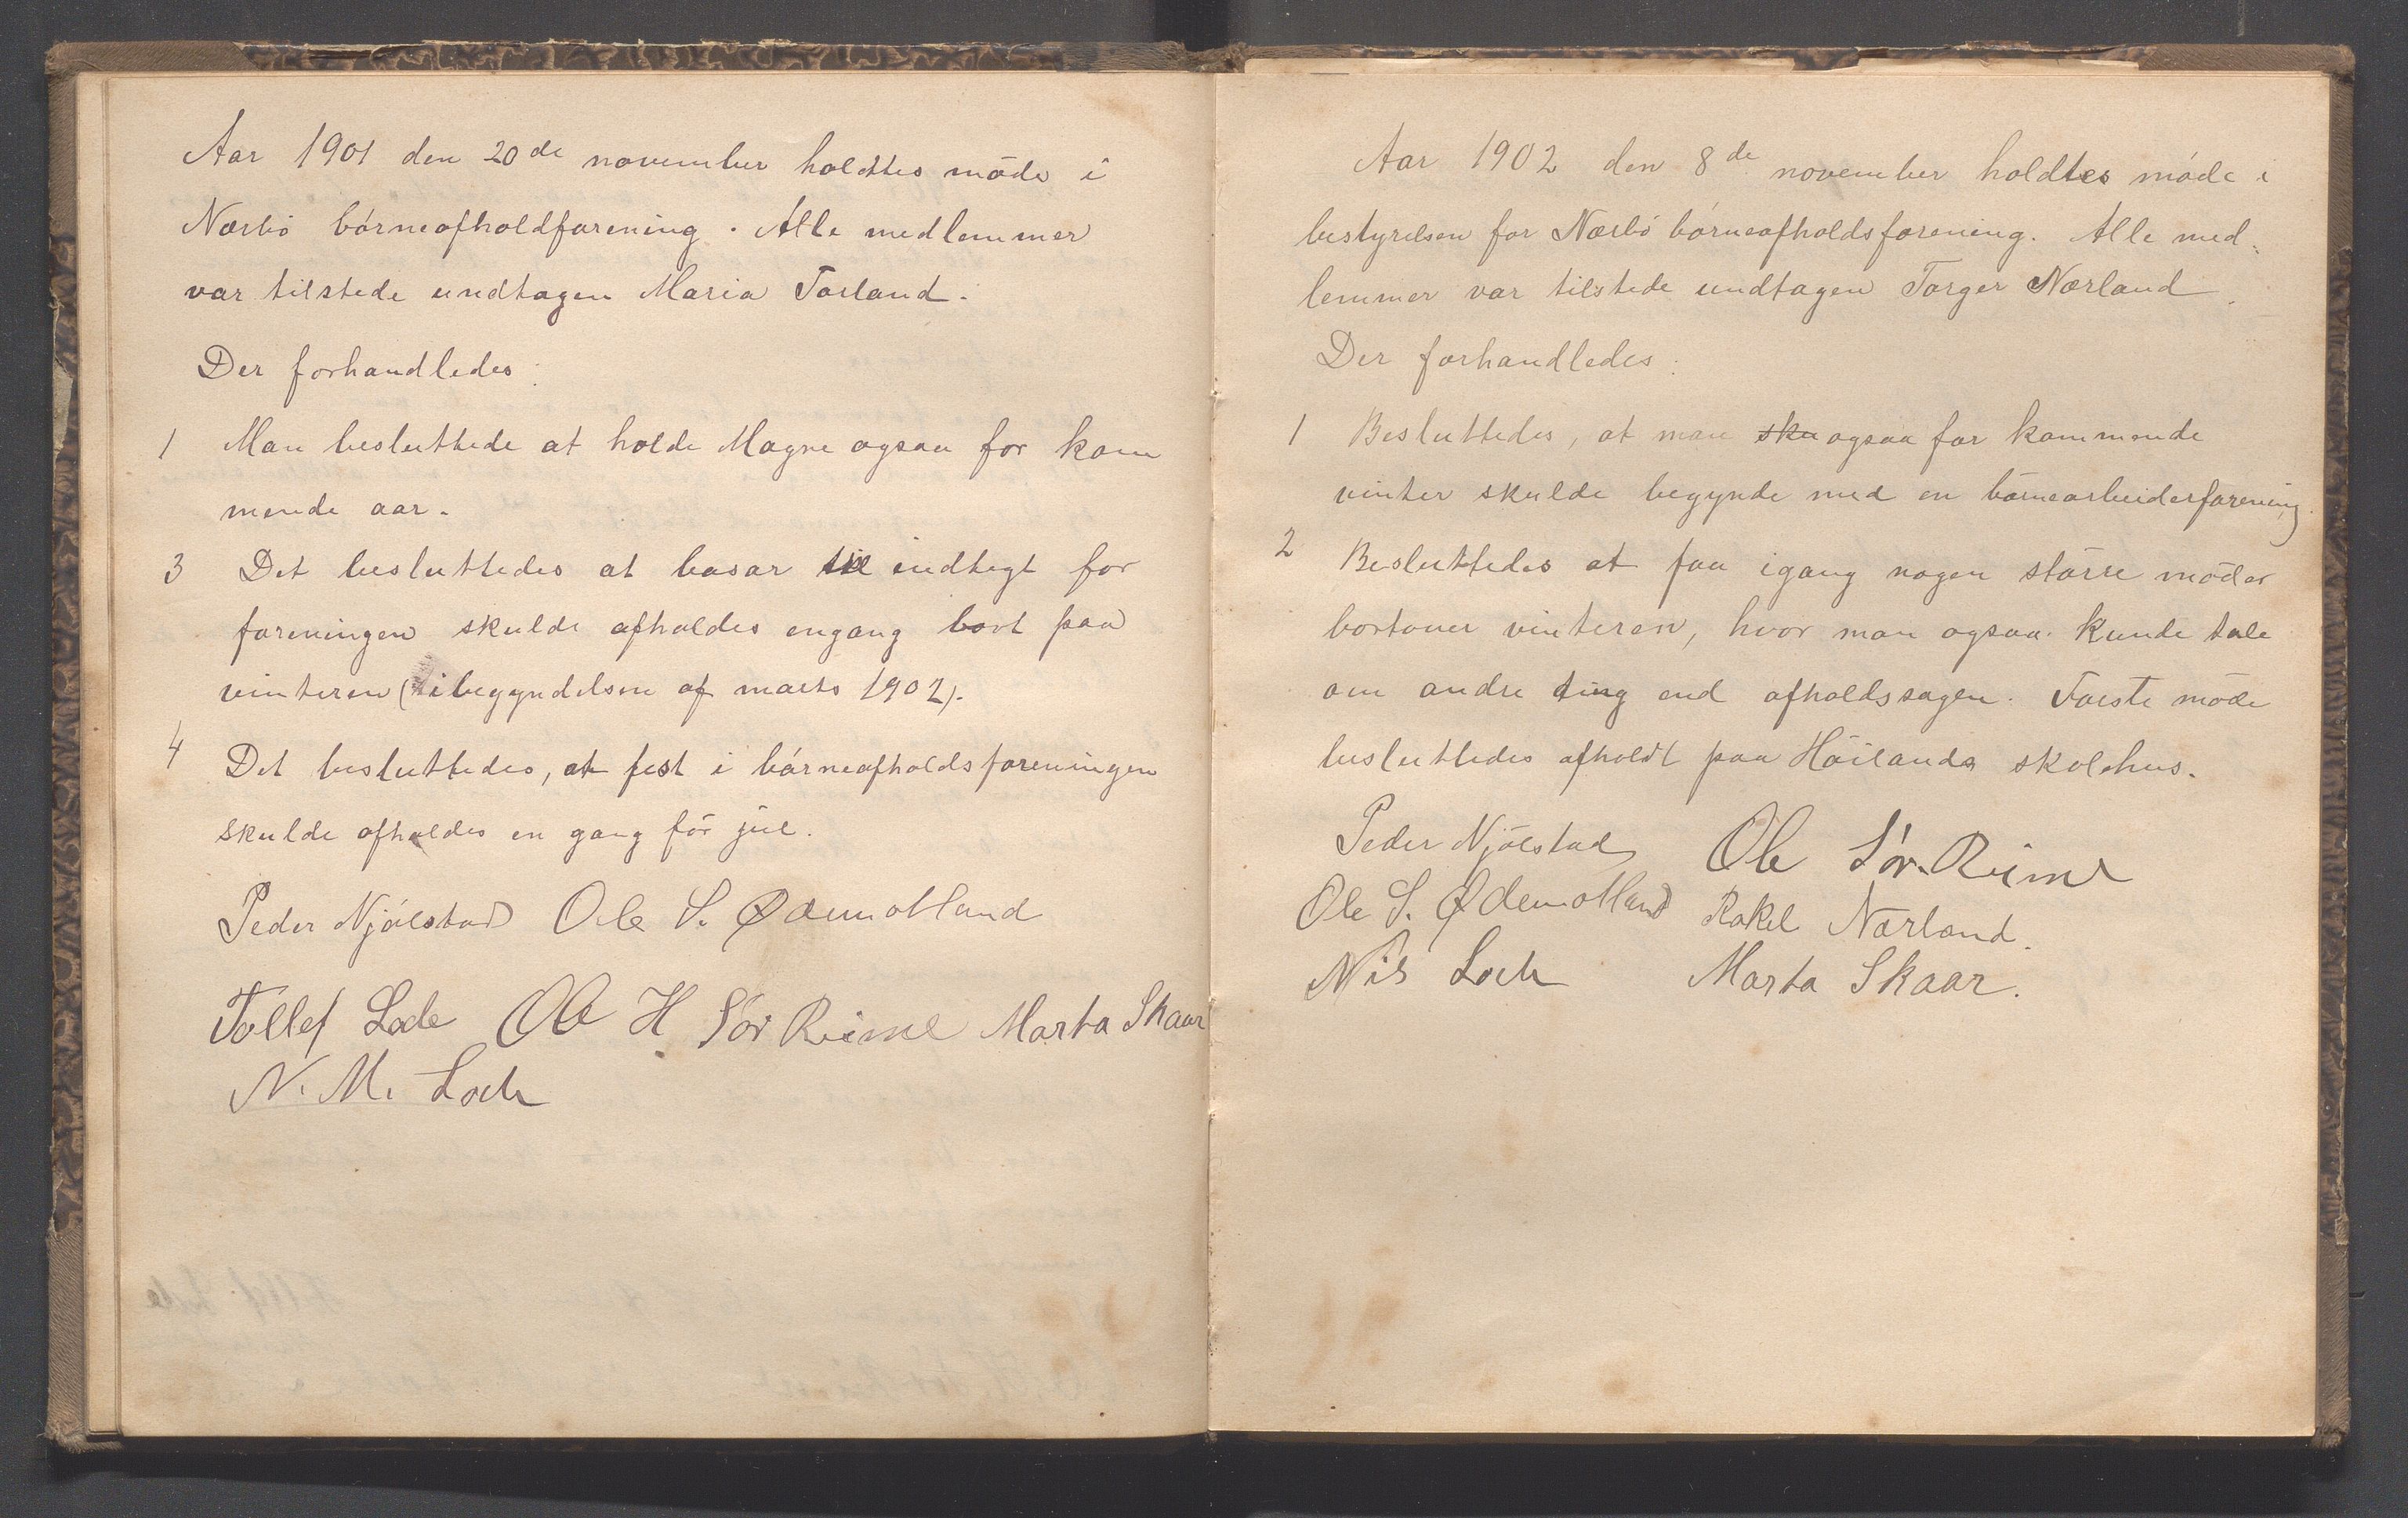 Aar 1901 den 20de november holdtes møde i
Nærbø børneafholdforening. Alle medlemmer
var tilstede undtagen Maria Torland.
Der forhandledes:
1 Man besluttede at holde Magne ogsaa for kom
mende aar.
3 Det besluttedes at basar til indtægt for
foreningen skulde afholdes engang bort paa
vinteren (i begyndelsen af marts 1902).
4 Det besluttedes, at fest i børneafholdsforeningen
skulde afholdes en gang før jul.
Peder Njølstad Ole S. Ødemotland
Tollef Lode Ole H Sør Reime Marta Skaar
N. M. Lode
Aar 1902 den 8de november holdtes møde i
bestyrelsen for Nærbø børneafholdsforening. Alle med-
lemmer var tilstede undtagen Torger Nærland.
Der forhandledes:
1 Besluttedes, at man sku ogsaa for kommende
vinter skulde begynde med en børnearbeiderforening.
2 Besluttedes at faa igang nogen større møder
bortover vinteren, hvor man ogsaa kunde tale
om andre ting end afholdssagen. Første møde
besluttedes afholdt paa Høilands skolehus.
Peder Njølstad Ole Sør-Reime
Ole S. Ødemotland Rakel Nærland.
Nils Lode Marta Skaar.